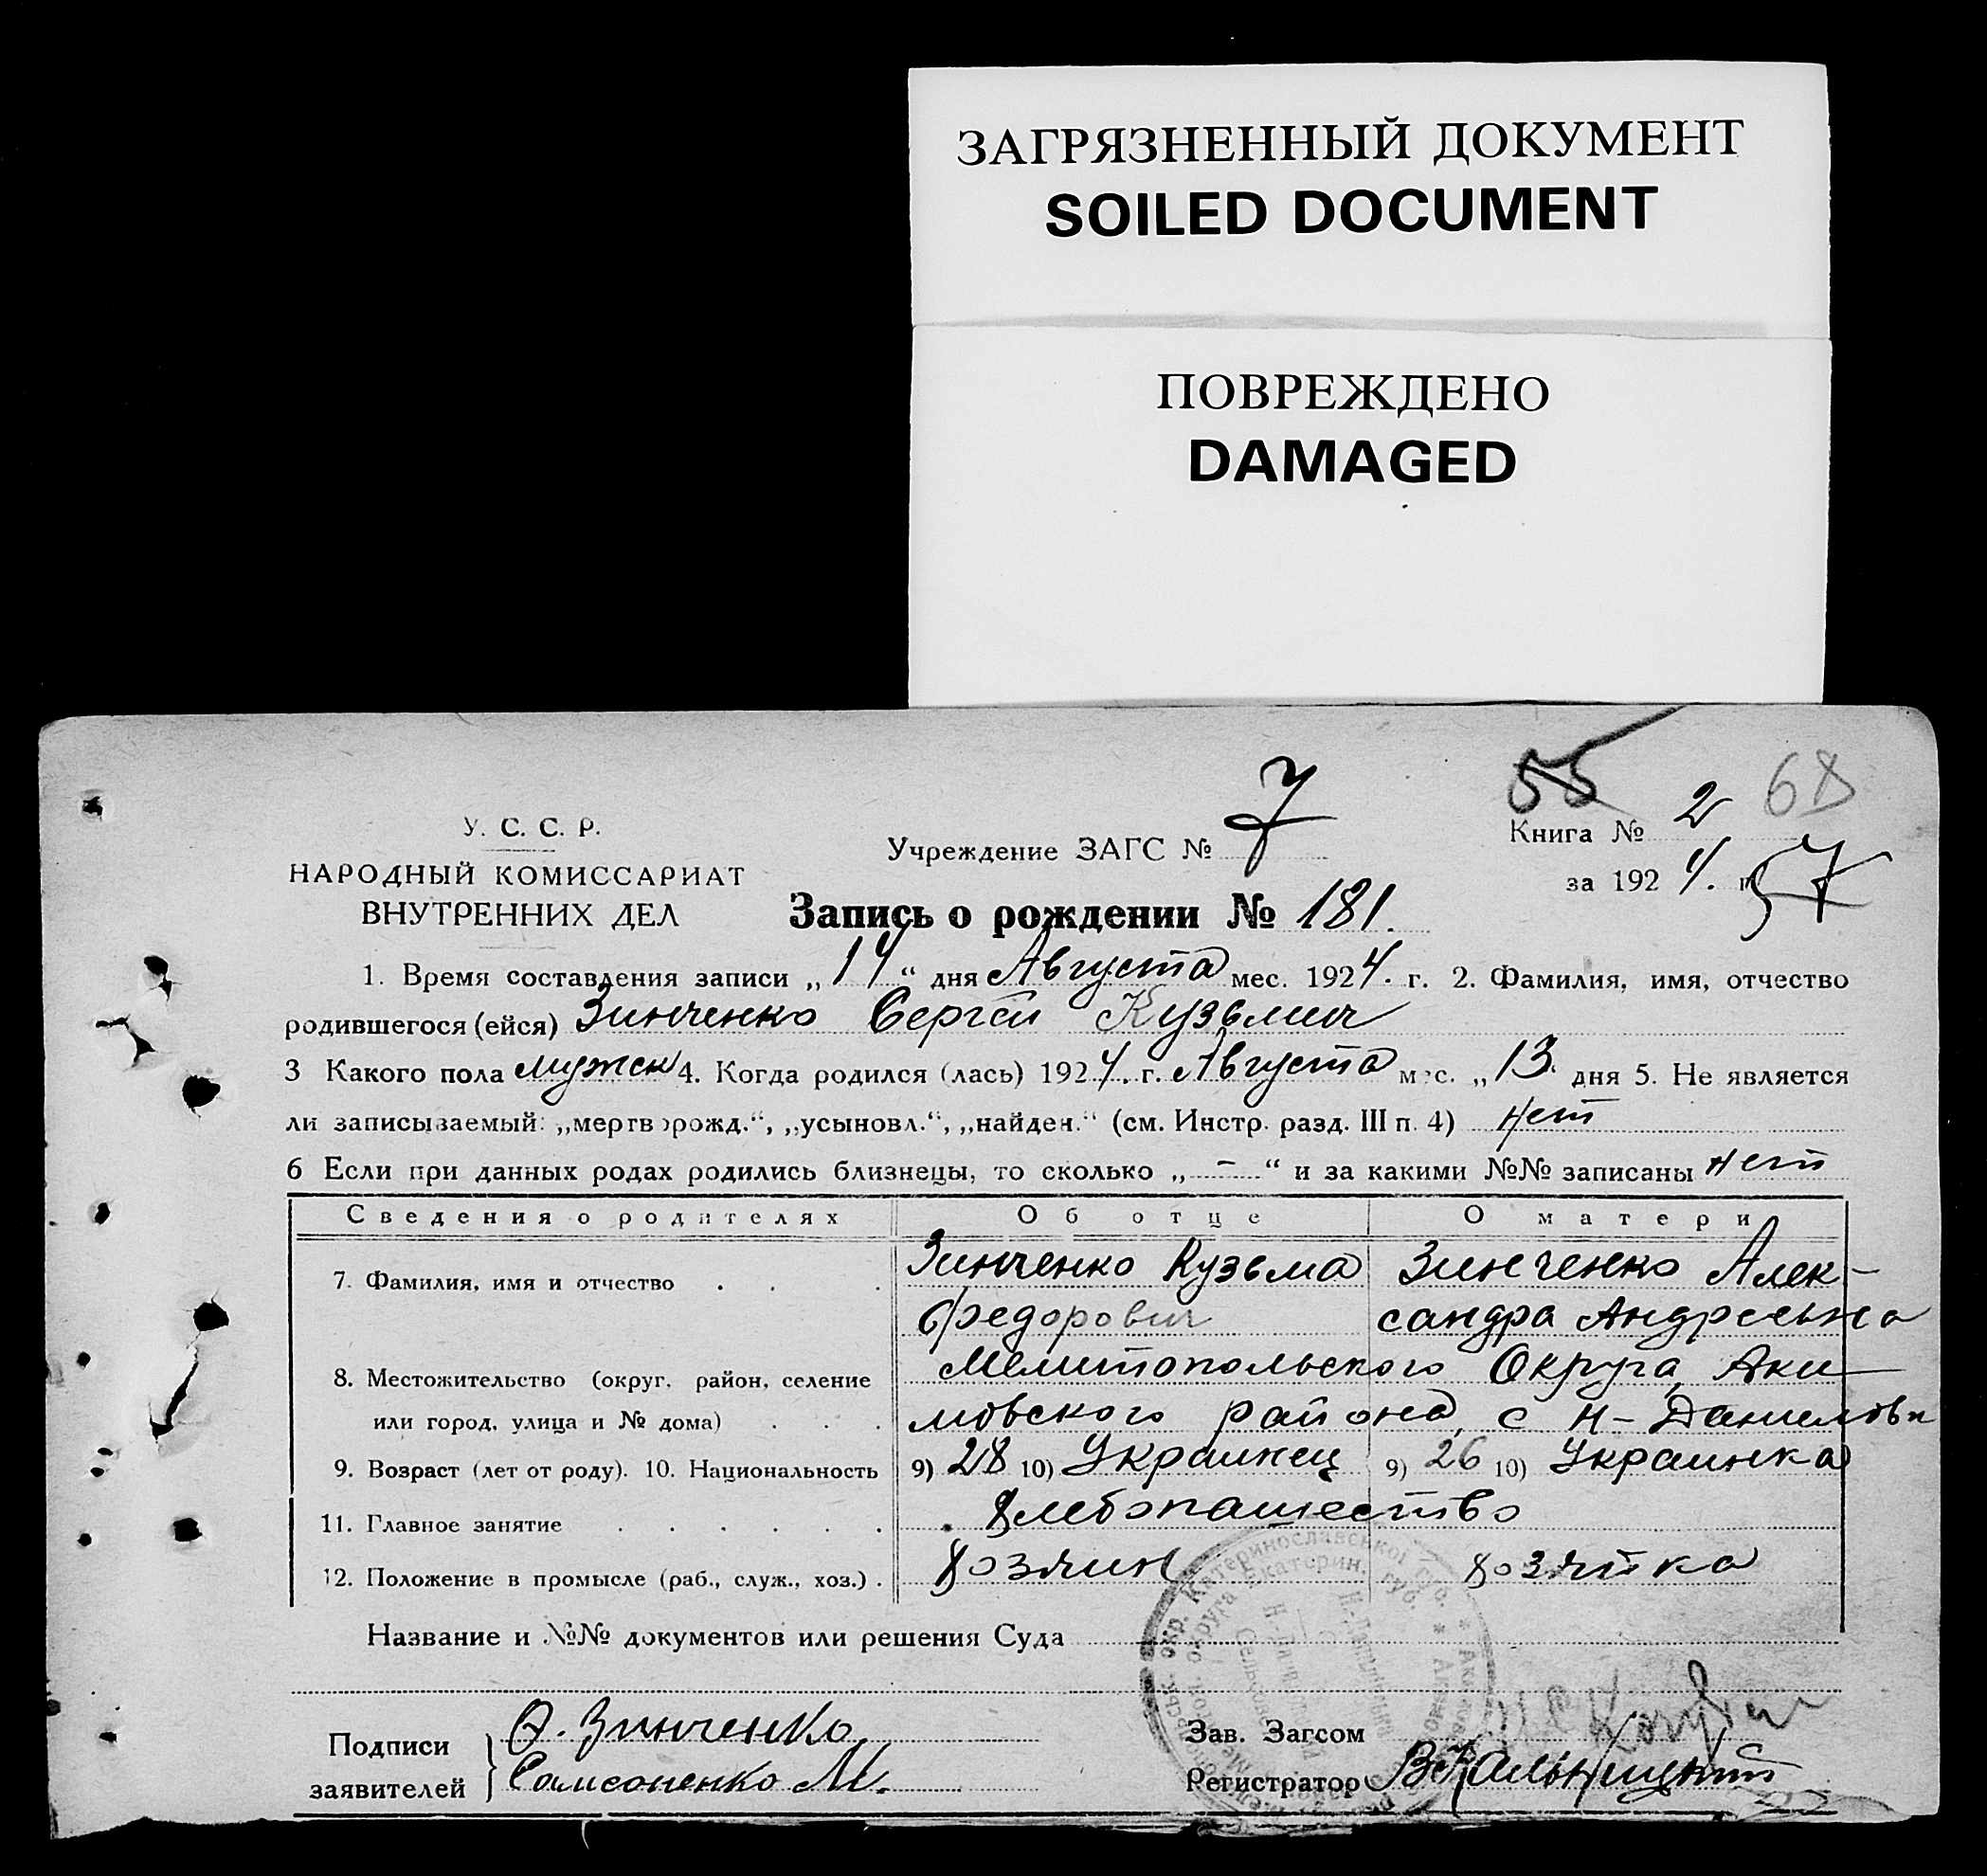 ЗАГРЯЗНЕННЫЙ ДОКУМЕНТ
SOILED DOCUMENT
ПОВРЕЖДЕНО
DAMAGED
55
68
У. С. С. Р.
НАРОДНЫЙ КОМИССАРИАТ
ВНУТРЕННИХ ДЕЛ
Учреждение ЗАГС № 7
Книга № 2
за 1924. г.
57
Запись о рождении № 181.
1. Время составления записи „14“ дня Августа мес. 1924. г. 2. Фамилия, имя, отчество
родившегося (ейся) Зинченко Сергей Кузьмич
3 Какого пола мужск 4. Когда родился (лась) 1924. г. Августа мес. „13“ дня 5. Не является
ли записываемый: „мертворожд.“, „усыновл.“, „найден.“ (см. Инстр. разд. III п. 4) нет
6 Если при данных родах родились близнецы, то сколько „-“ и за какими №№ записаны нет
Сведения о родителях Об отце О матери
7. Фамилия, имя и отчество . . . Зинченко Кузьма Зинченко Алек-
Федорович сандра Андреевна
8. Местожительство (округ, район, селение Мелитопольского Округа, Аки
или город, улица и № дома) . . . мовского района, с Н-Даниловки
9. Возраст (лет от роду). 10. Национальность 9) 28 10) Украинец 9) 26 10) Украинка
11. Главное занятие . . . . . . Хлебопашество
12. Положение в промысле (раб., служ., хоз.) . Хозяин Хозяйка
Название и №№ документов или решения Суда
Подписи заявителей } О. Зинченко
Самсоненко М.
Зав. Загсом
Регистратор